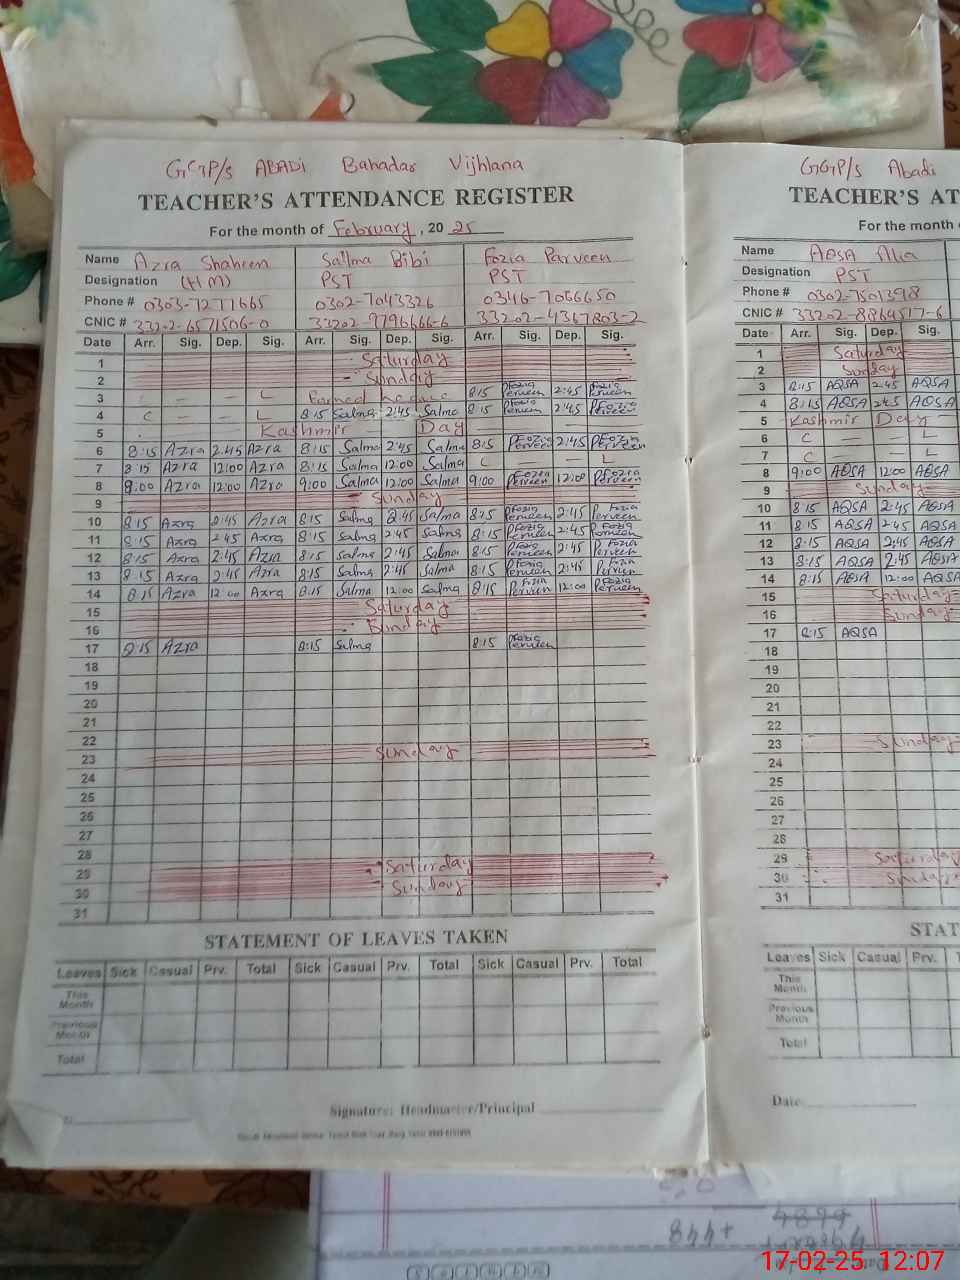 GGP/s ABADi Bahadar Vijhlana
TEACHER'S ATTENDANCE REGISTER
For the month of February, 2025
Name Azra Shaheen Salma Bibi Fozia Parveen
Designation (HM) PST PST
Phone # 0303-7271665 0302-7043326 0346-7066650
CNIC # 33202-6571506-0 33202-9796666-6 33202-4347803-2
Date Arr. Sig. Dep. Sig. Arr. Sig. Dep. Sig. Arr. Sig. Dep. Sig.
1 Saturday
2 Sunday
3 — — L Earned 8:15 Fozia Perveen 2:45 Fozia Perveen
4 C — — L 8:15 Salma 2:45 Salma 8:15 Fozia Perveen 2:45 Fozia Perveen
5 Kashmir Day
6 8:15 Azra 2:45 Azra 8:15 Salma 2:45 Salma 8:15 Fozia Perveen 2:45 Fozia Perveen
7 8:15 Azra 12:00 Azra 8:15 Salma 12:00 Salma C — — L
8 9:00 Azra 12:00 Azra 9:00 Salma 12:00 Salma 9:00 Fozia Perveen 12:00 Fozia Perveen
9 Sunday
10 8:15 Azra 2:45 Azra 8:15 Salma 2:45 Salma 8:15 Fozia Perveen 2:45 Fozia Perveen
11 8:15 Azra 2:45 Azra 8:15 Salma 2:45 Salma 8:15 Fozia Perveen 2:45 Fozia Perveen
12 8:15 Azra 2:45 Azra 8:15 Salma 2:45 Salma 8:15 Fozia Perveen 2:45 Fozia Perveen
13 8:15 Azra 2:45 Azra 8:15 Salma 2:45 Salma 8:15 Fozia Perveen 2:45 Fozia Perveen
14 8:15 Azra 12:00 Azra 8:15 Salma 12:00 Salma 8:15 Fozia Perveen 12:00 Fozia Perveen
15 Saturday
16 Sunday
17 8:15 Azra 8:15 Salma 8:15 Fozia Perveen
18
19
20
21
22
23 Sunday
24
25
26
27
28
29 Saturday
30 Sunday
31
STATEMENT OF LEAVES TAKEN
Leaves Sick Casual Prv. Total Sick Casual Prv. Total Sick Casual Prv. Total
This Month
Previous Month
Total
Signature: Headmaster/Principal
GGP/s Abadi
TEACHER'S AT
For the month
Name AQSA Alia
Designation PST
Phone # 0302-7501398
CNIC # 33202-8864517-6
Date Arr. Sig. Dep. Sig.
1 Saturday
2 Sunday
3 8:15 AQSA 2:45 AQSA
4 8:15 AQSA 2:45 AQSA
5 Kashmir Day
6 C — — L
7 C — — L
8 9:00 AQSA 12:00 AQSA
9 Sunday
10 8:15 AQSA 2:45 AQSA
11 8:15 AQSA 2:45 AQSA
12 8:15 AQSA 2:45 AQSA
13 8:15 AQSA 2:45 AQSA
14 8:15 AQSA 12:00 AQSA
15 Saturday
16 Sunday
17 8:15 AQSA
18
19
20
21
22
23 Sunday
24
25
26
27
28
29 Saturday
30 Sunday
31
STAT
Leaves Sick Casual Prv.
This Month
Previous Month
Total
Date
17-02-25 12:07